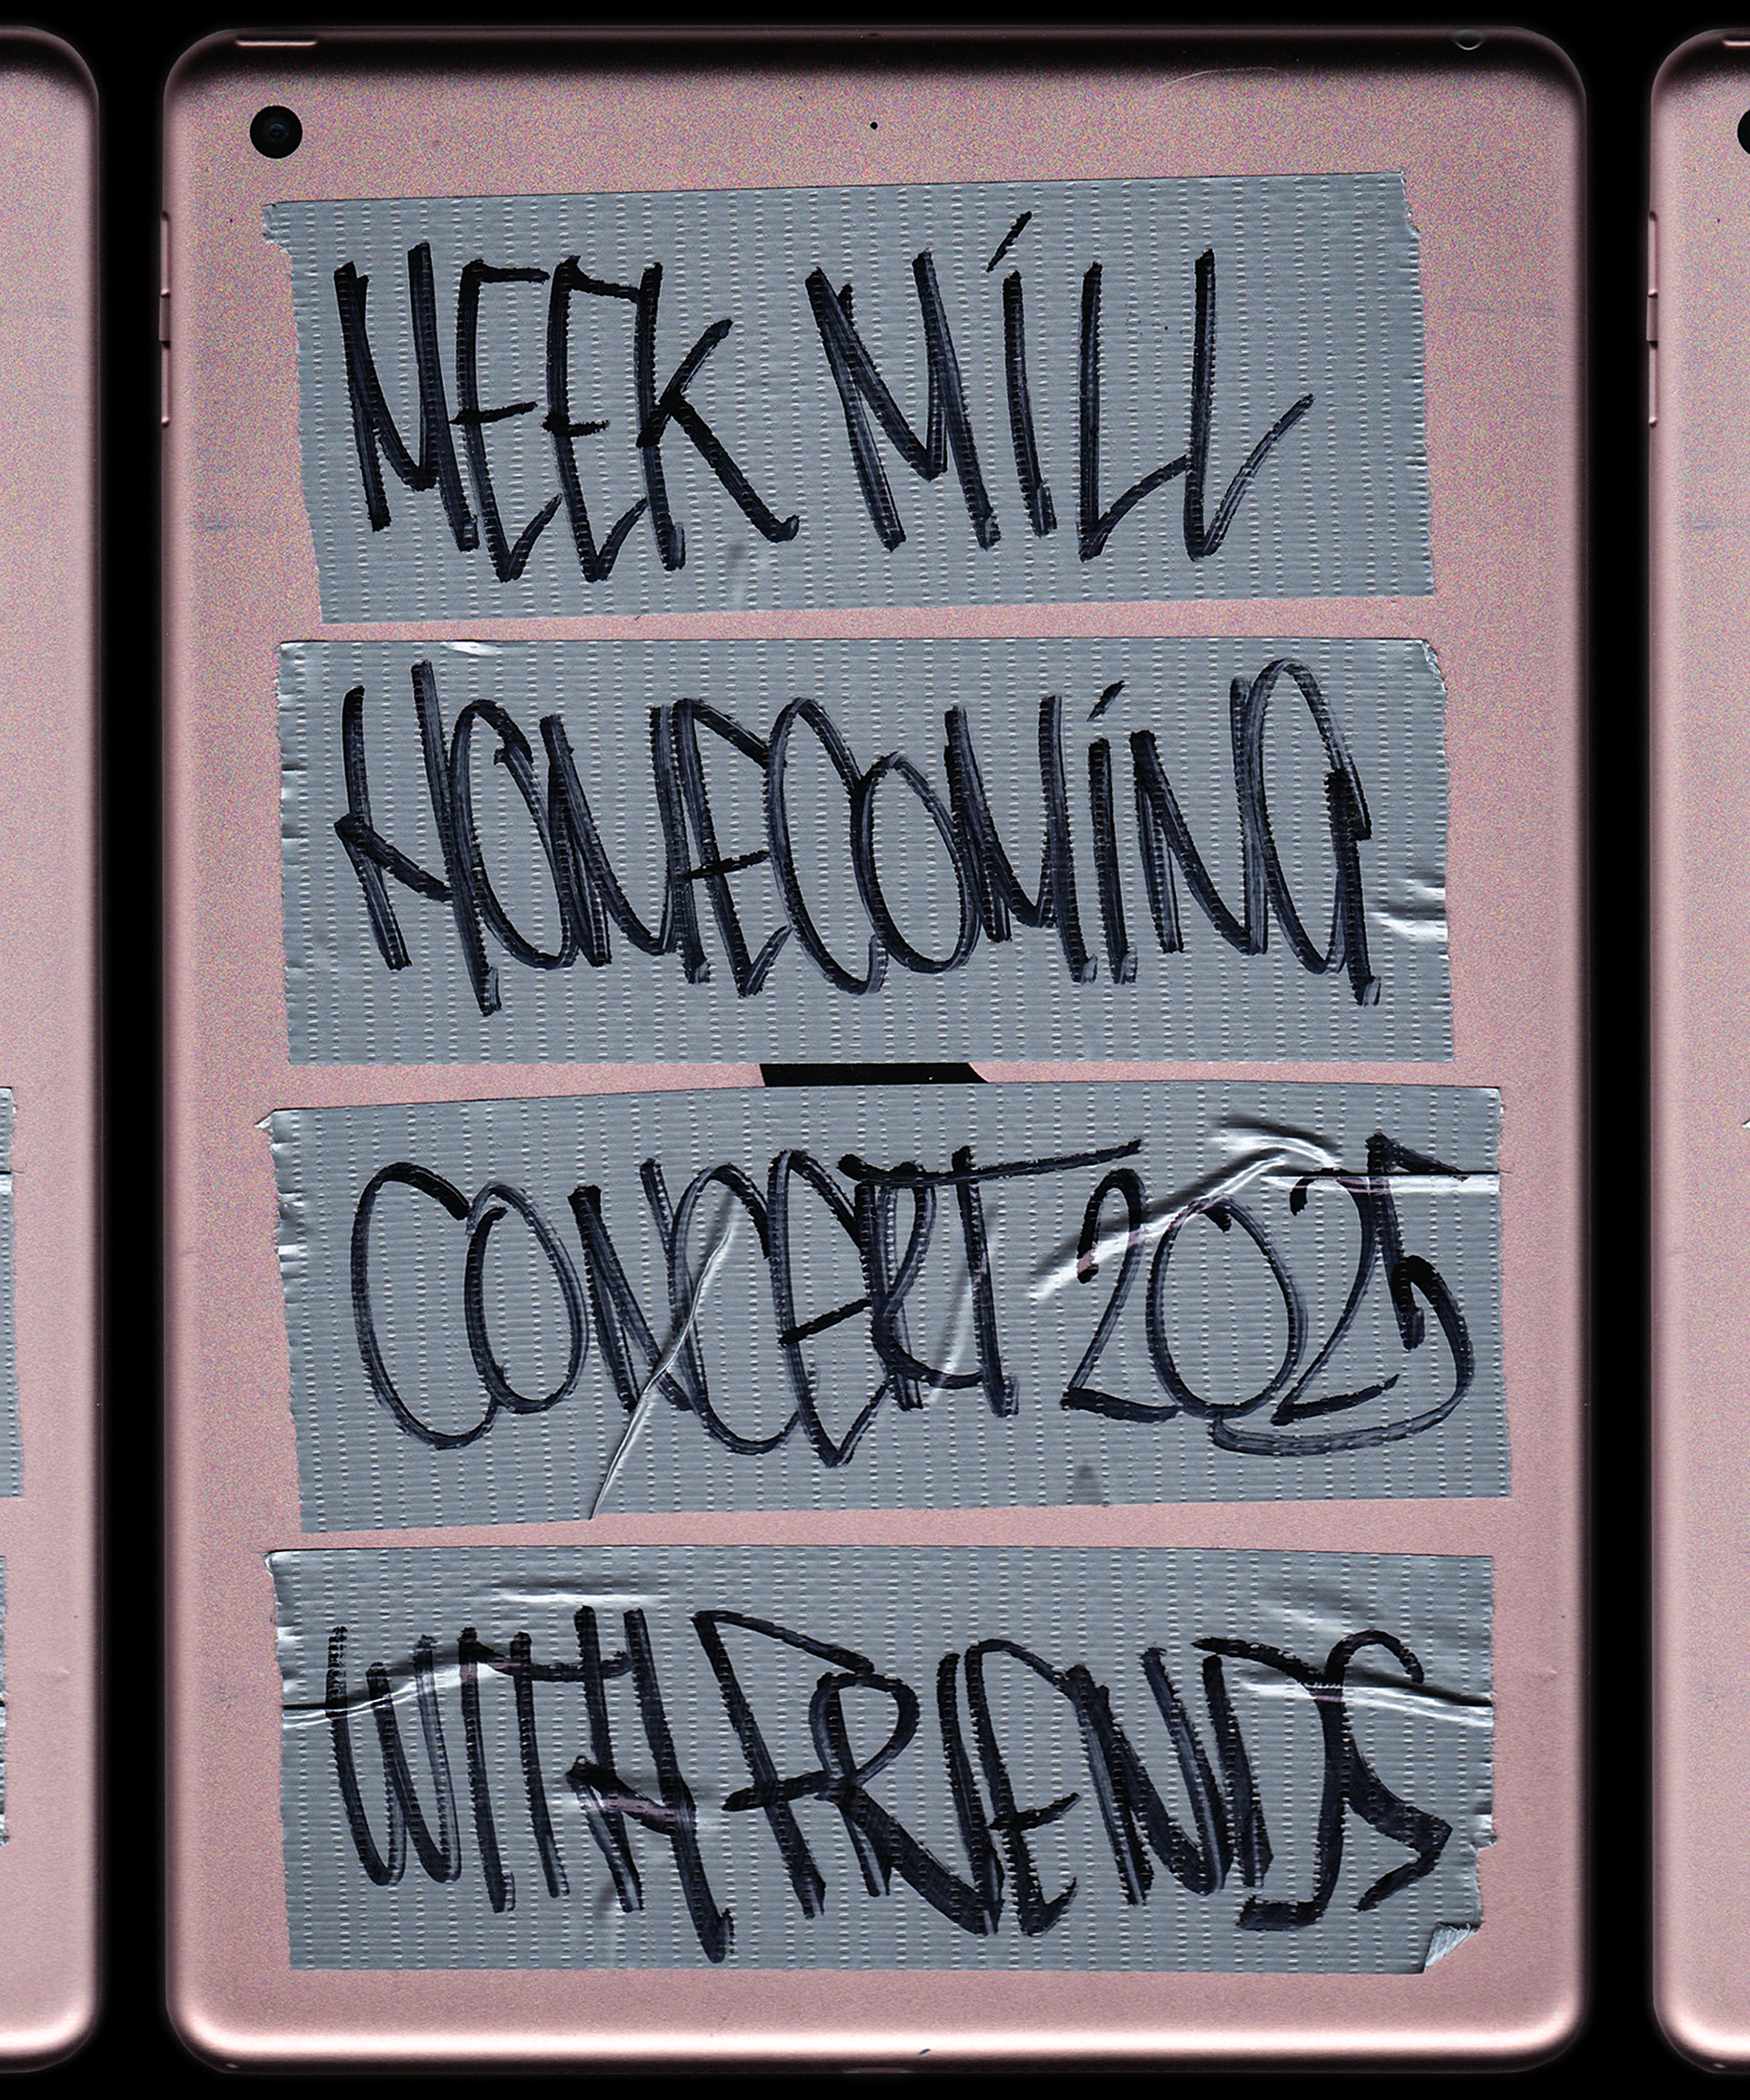 MEEK MILL
HOMECOMING
CONCERT 2025
WITH FRIENDS